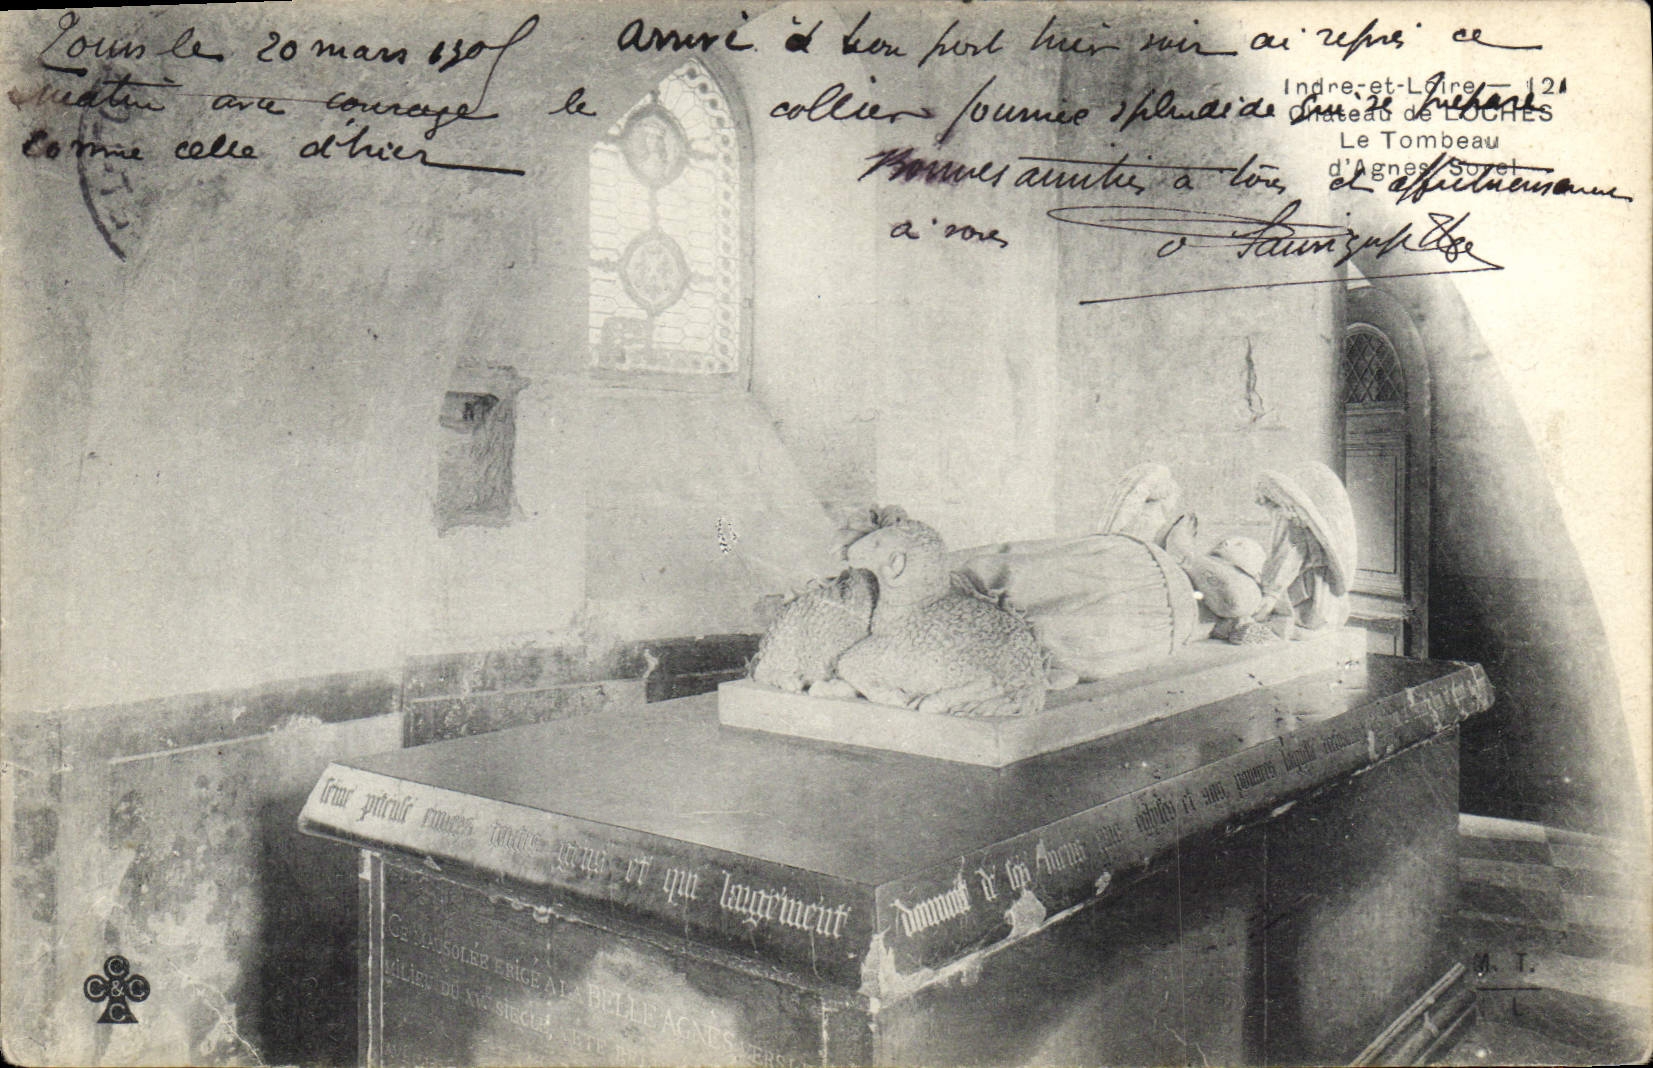 Tours le 20 mars 1905 Arrivé à bon port hier soir ai repris ce
matin avec courage le collier journée splendide qui se prépare
comme celle d'hier
Bonnes amitiés à tous et affectueusement
à vous
Indre-et-Loire — 121
Château de LOCHES
Le Tombeau
d'Agnès Sorel
et qui largement
donnoit de
CE MAUSOLÉE ERIGÉ A LA BELLE AGNÈS VERS LE
MILIEU DU XVE SIECLE
C
C&C
C
M. T.
L